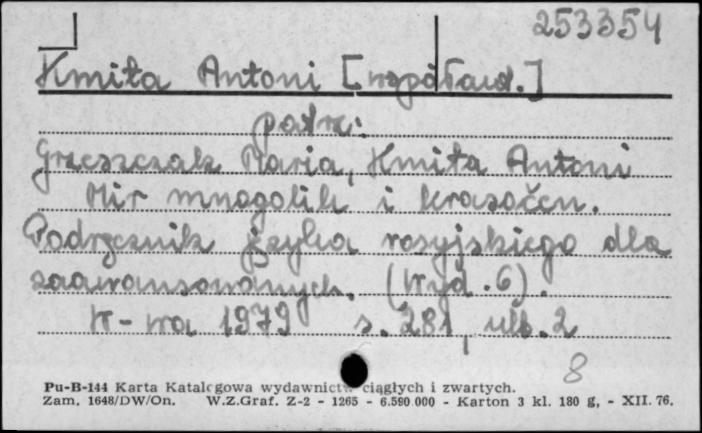 253354
Kmita Antoni [współaut.]
patrz:
Grzeszczak Maria, Kmita Antoni
Mir mnogolik i krasočen.
Podręcznik języka rosyjskiego dla
zaawansowanych. (Wyd. 6).
W-wa 1979 s. 281, nlb. 2
8
Pu-B-144 Karta Katalogowa wydawnictw ciągłych i zwartych.
Zam. 1648/DW/On. W.Z.Graf. Z-2 - 1265 - 6.590.000 - Karton 3 kl. 180 g, - XII. 76.